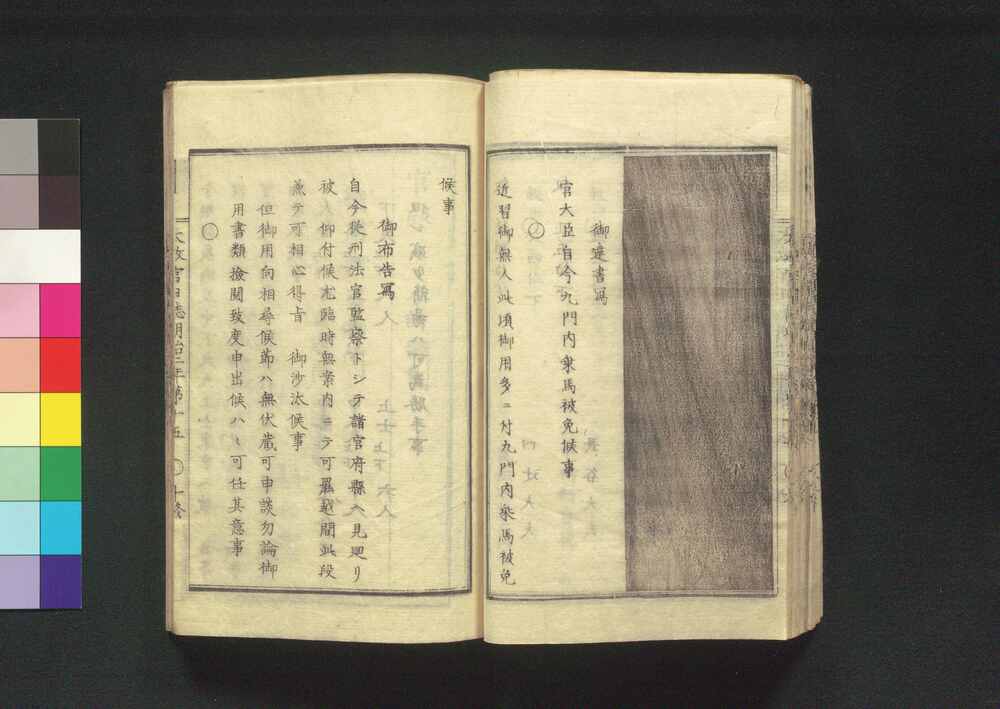 御達書寫
官大臣自今九門内乘馬被免候事
近習御無人此頃御用多ニ付九門内乘馬被免
候事
御布告寫
自今從刑法官監察トシテ諸官府縣ヘ見廻リ
被 仰付候尤臨時無案内ニテ可罷越間此段
兼テ可相心得旨 御沙汰候事
但御用向相尋候節ハ無伏臓可申談勿論御
用書類撿閲致度申出候ハヽ可任其意事
太政官日誌明治二年第十五